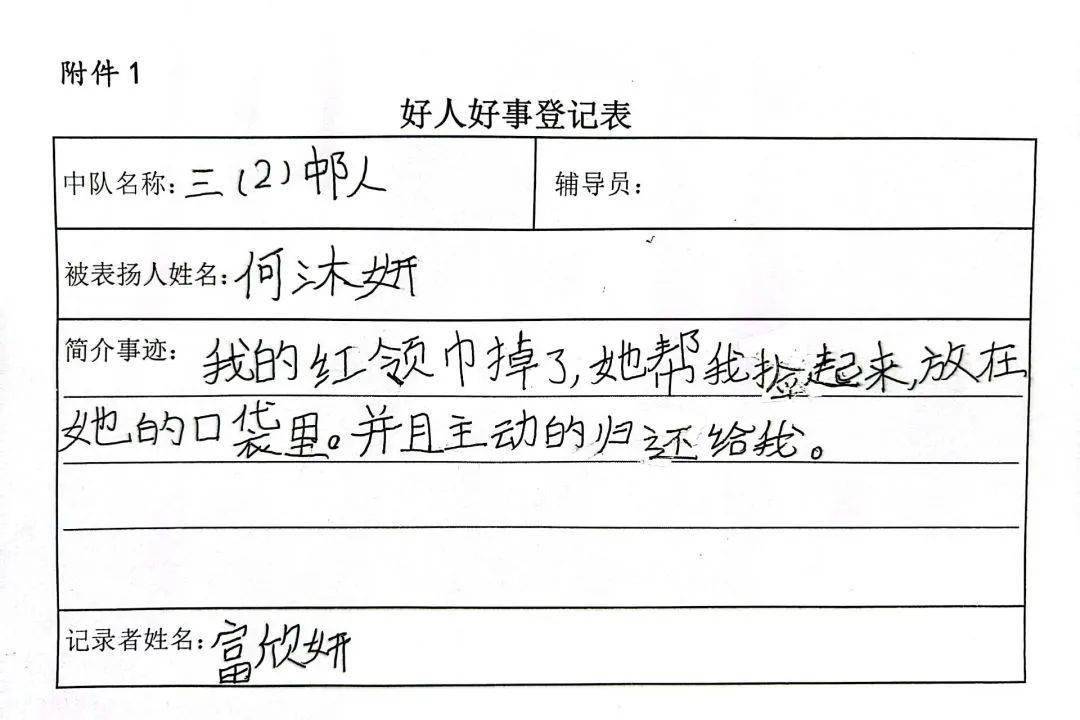 附件1
好人好事登记表
中队名称：三（2）中队
辅导员：
被表扬人姓名：何沐妍
简介事迹：我的红领巾掉了，她帮我捡起来，放在
她的口袋里。并且主动的归还给我。
记录者姓名：富欣妍